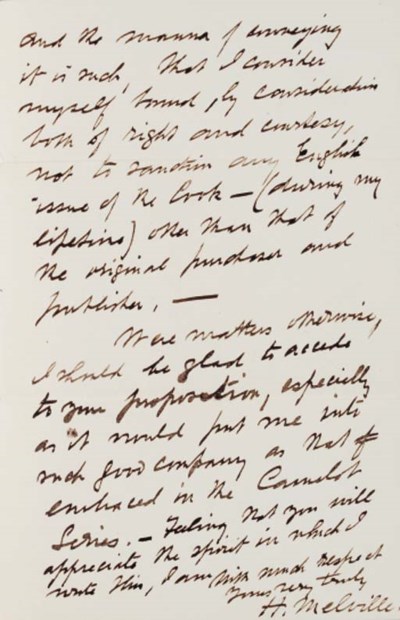 and the manner of conveying
it is such, that I consider
myself bound, by consideration
both of right and courtesy,
not to sanction any English
issue of the book — (during my
lifetime) other than that of
the original purchaser and
publisher. —
Were matters otherwise,
I should be glad to accede
to your proposition, especially
as it would put me into
such good company as that
embraced in the Camelot
Series. — Feeling that you will
appreciate the spirit in which I
write this, I am with much respect
Yours very truly
H. Melville.